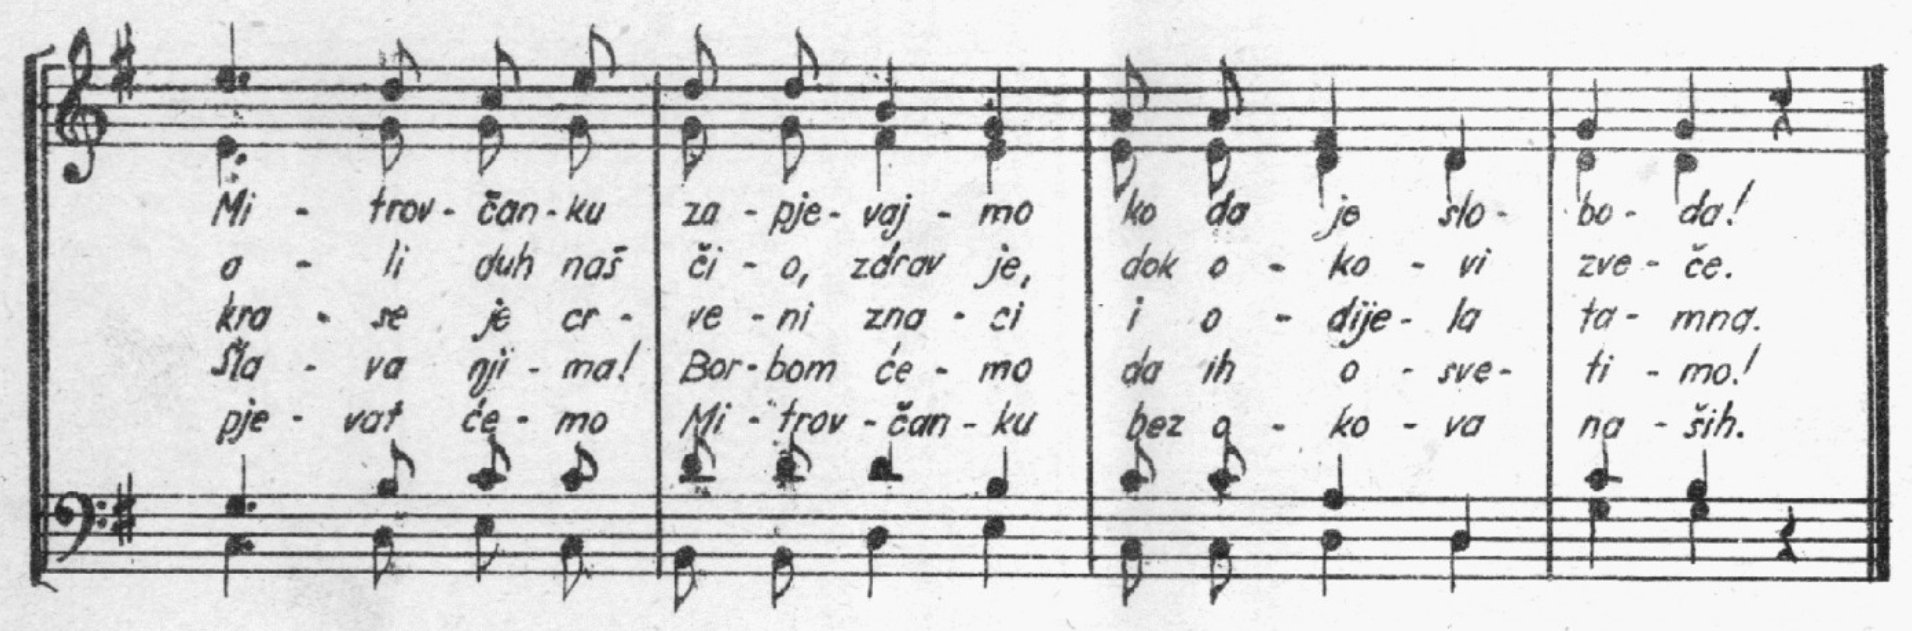 Mi - trov - čan - ku za - pje - vaj - mo ko da je slo - bo - da!
a - li duh naš či - o, zdrav je, dok o - ko - vi zve - če.
kra - se je cr - ve - ni zna - ci i o - dije - la ta - mna.
Sla - va nji - ma! Bor - bom će - mo da ih o - sve - ti - mo!
pje - vat će - mo Mi - trov - čan - ku bez o - ko - va na - ših.